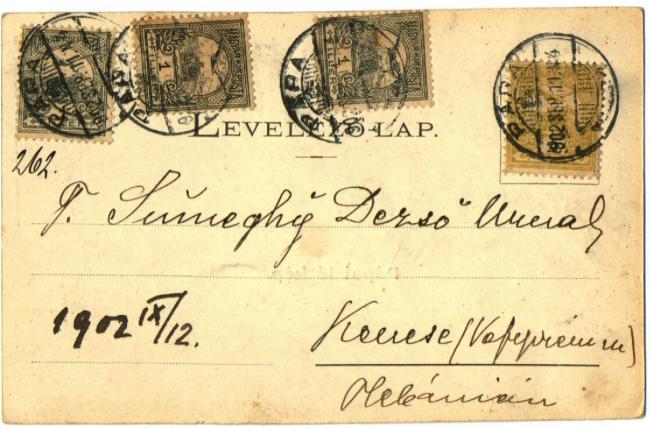 PÁPA
PÁPA
PÁPA
PÁPA
1
1
LEVELEZŐ-LAP.
262.
T. Sümeghy Dezső Urnak
1902 IX/12.
Kenese (Veszprém m)